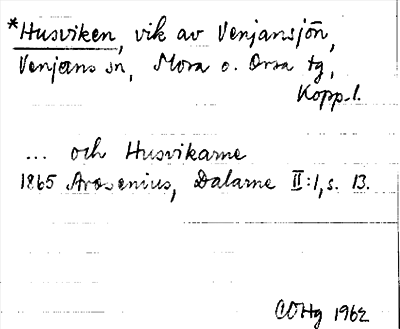 *Husviken, vik av Venjansjön,
Venjans sn, Mora o. Orsa tg,
Kopp. l.
... och Husvikarne
1865 Arosenius, Dalarne II:1, s. 13.
COHg 1962